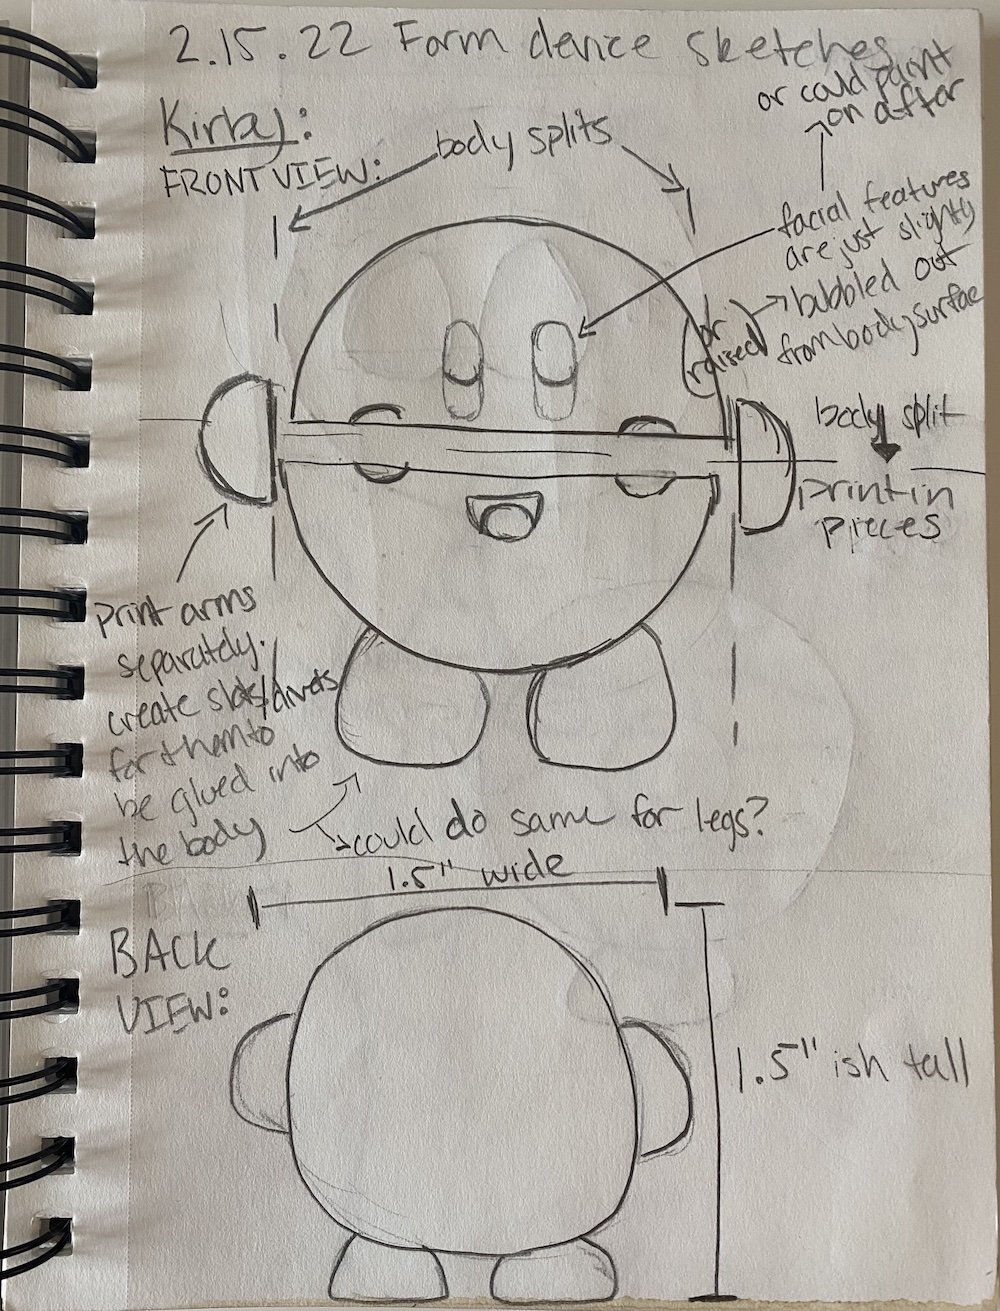 2.15.22 Form device sketches
Kirby:
FRONT VIEW:
body splits
or could paint
on after
facial features
are just slightly
bubbled out
from body surface
(or
raised)
body split
print in
pieces
print arms
separately.
create slots/divets
for them to
be glued into
the body
could do same for legs?
1.5" wide
BACK
VIEW:
1.5" ish tall